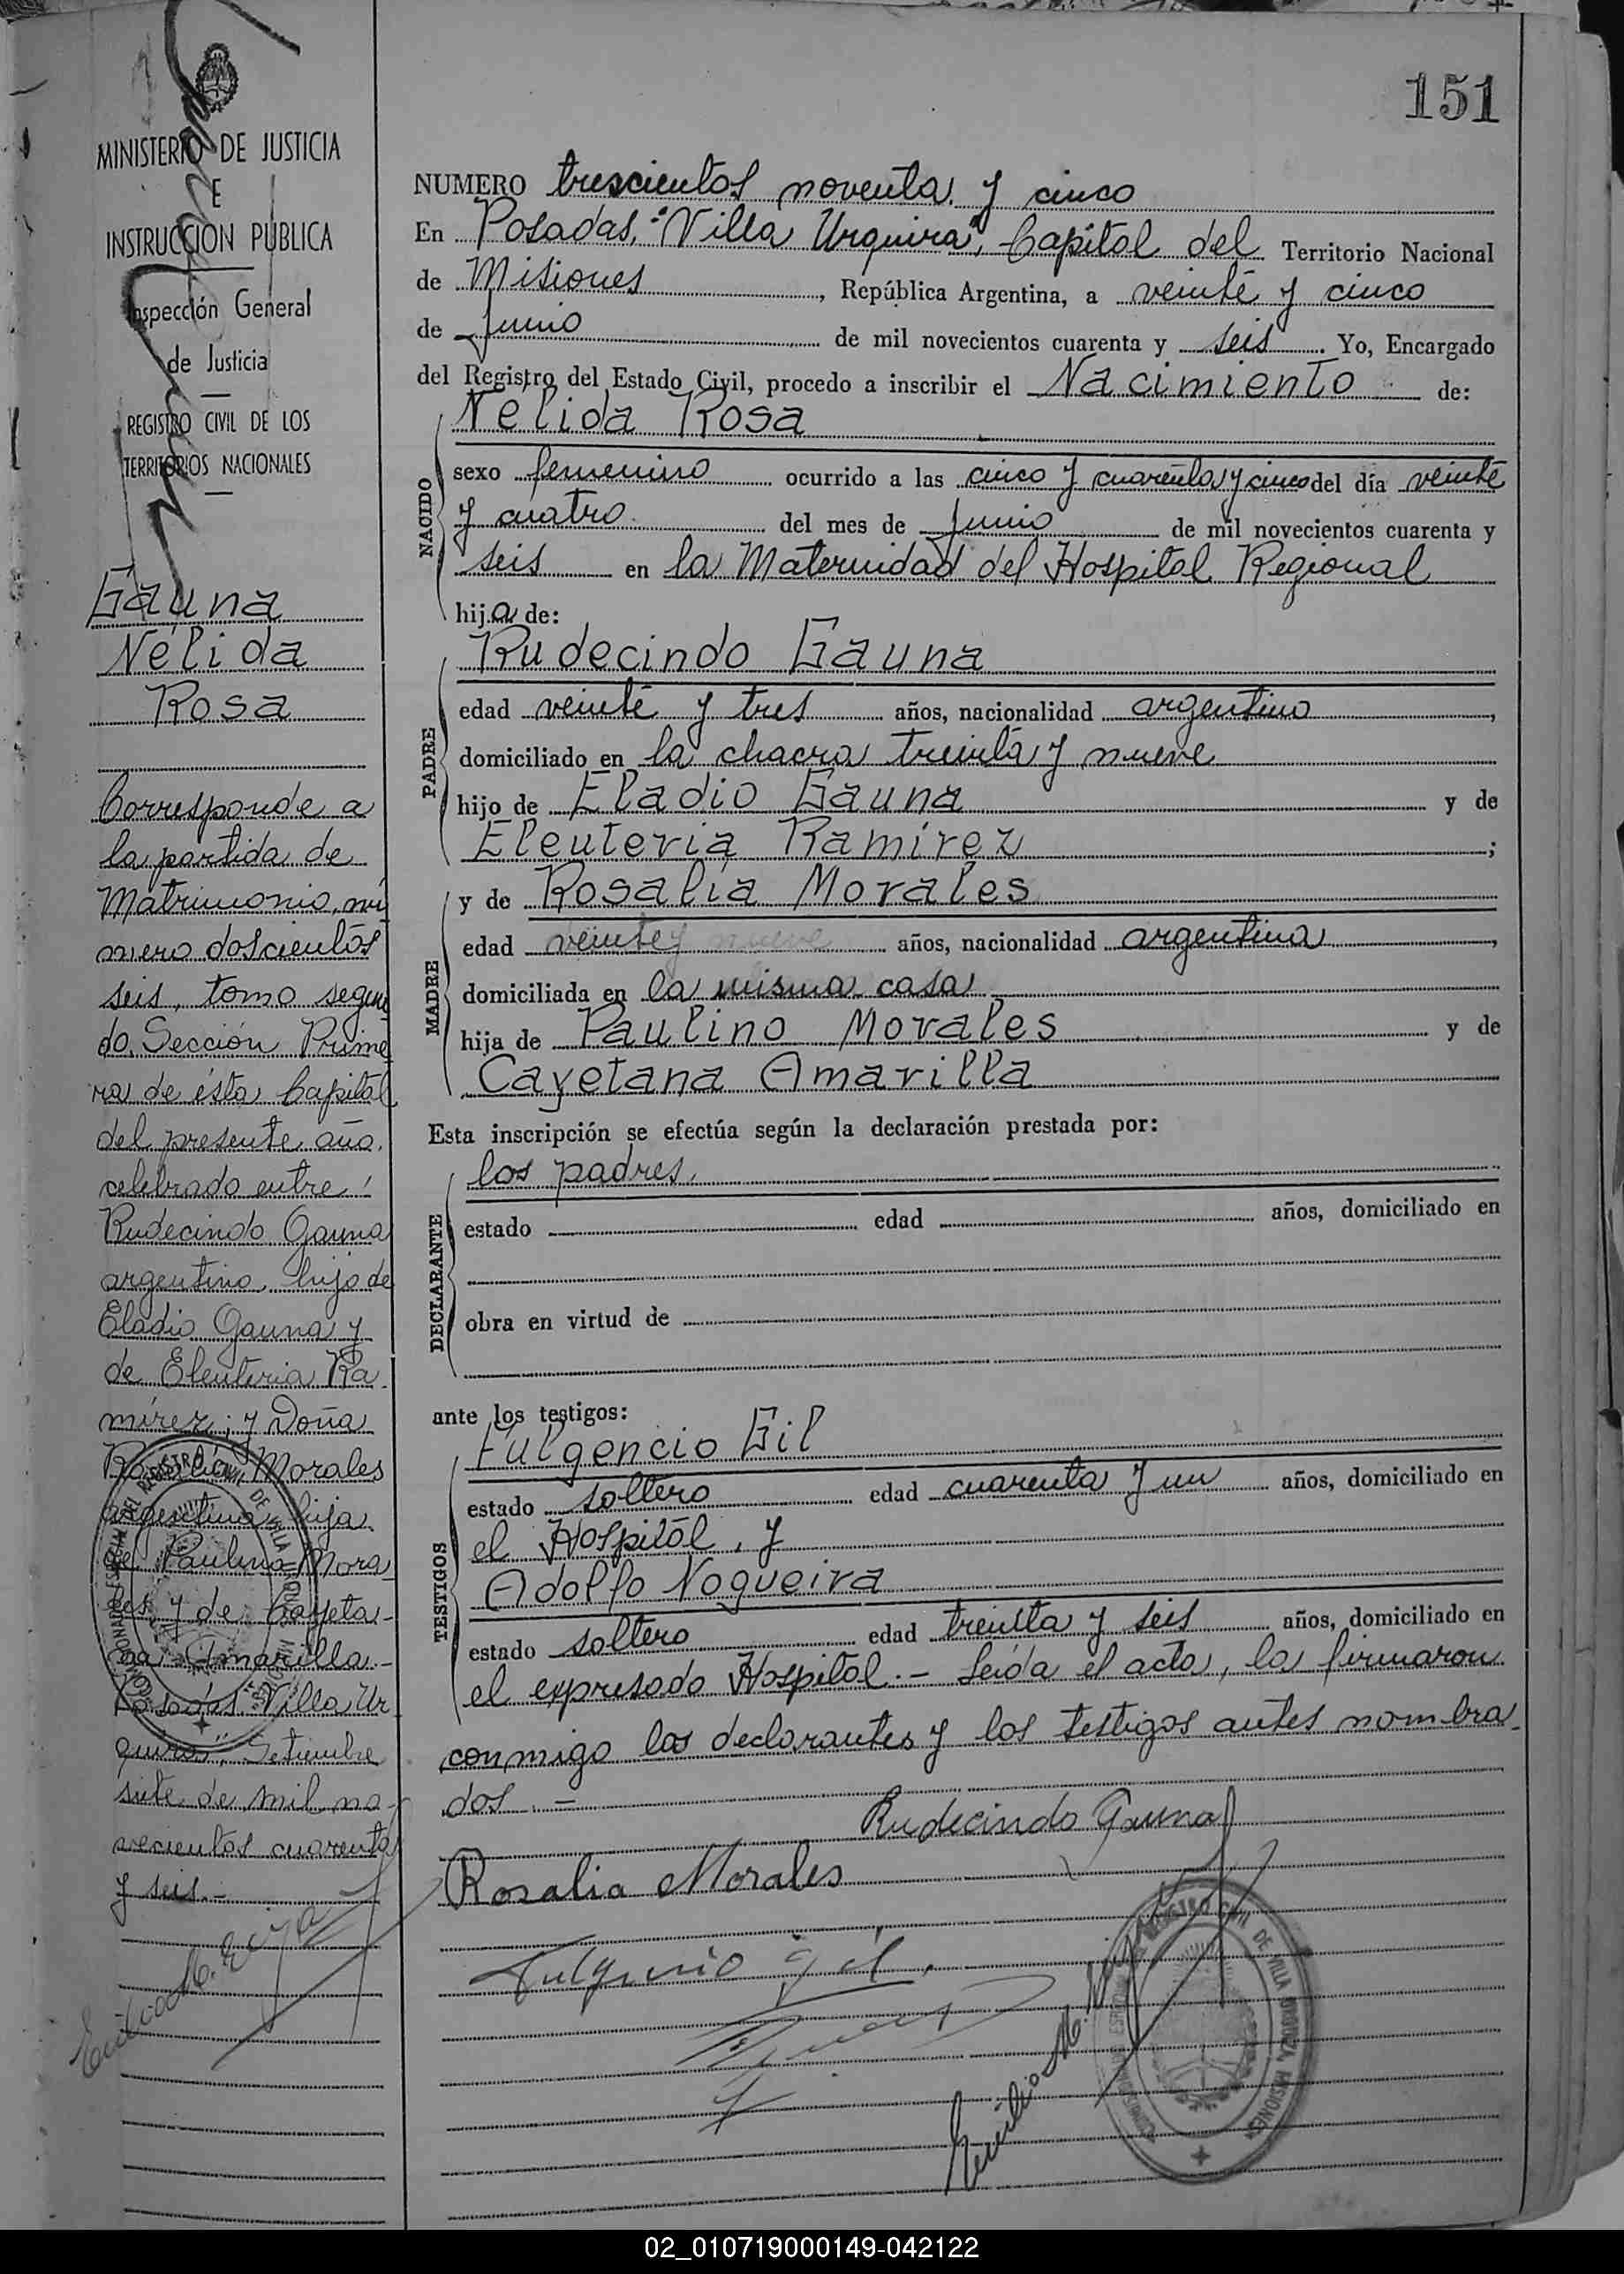 151
MINISTERIO DE JUSTICIA
E
INSTRUCCION PUBLICA
Inspección General
de Justicia
REGISTRO CIVIL DE LOS
TERRITORIOS NACIONALES
Gauna
Nélida
Rosa
Corresponde a
la partida de
Matrimonio, nú
mero doscientos
seis, tomo segun
do, Sección Prime
ra de ésta Capital
del presente año,
celebrado entre:
Rudecindo Gauna
argentino hijo de
Eladio Gauna y
de Eleuteria Ra
mírez; y Doña
Rosalía Morales
argentina hija
de Paulino Mora
les y de Cayeta-
na Amarilla.-
Posadas "Villa Ur
quiza", Setiembre
siete de mil no-
vecientos cuarenta
y seis.-
NUMERO trescientos noventa y cinco
En Posadas, "Villa Urquiza", Capital del Territorio Nacional
de Misiones, República Argentina, a veinte y cinco
de Junio de mil novecientos cuarenta y seis. Yo, Encargado
del Registro del Estado Civil, procedo a inscribir el Nacimiento de:
NACIDO
Nélida Rosa
sexo femenino ocurrido a las cinco y cuarenta y cinco del día veinte
y cuatro del mes de Junio de mil novecientos cuarenta y
seis en la Maternidad del Hospital Regional
hija de:
PADRE
Rudecindo Gauna
edad veinte y tres años, nacionalidad argentino,
domiciliado en la chacra treinta y nueve
hijo de Eladio Gauna y de
Eleuteria Ramírez;
MADRE
y de Rosalía Morales
edad veinte y nueve años, nacionalidad argentina,
domiciliada en la misma casa
hija de Paulino Morales y de
Cayetana Amarilla
Esta inscripción se efectúa según la declaración prestada por:
DECLARANTE
los padres.
estado edad años, domiciliado en
obra en virtud de
ante los testigos:
TESTIGOS
Fulgencio Gil
estado soltero edad cuarenta y un años, domiciliado en
el Hospital, y
Adolfo Nogueira
estado soltero edad treinta y seis años, domiciliado en
el expresado Hospital.- Leída el acta, la firmaron
conmigo los declarantes y los testigos antes nombra-
dos.-
Rudecindo Gauna
Rosalia Morales
Fulgencio Gil.
Emilio M.
REGISTRO CIVIL DE VILLA URQUIZA MISIONES
02_010719000149-042122